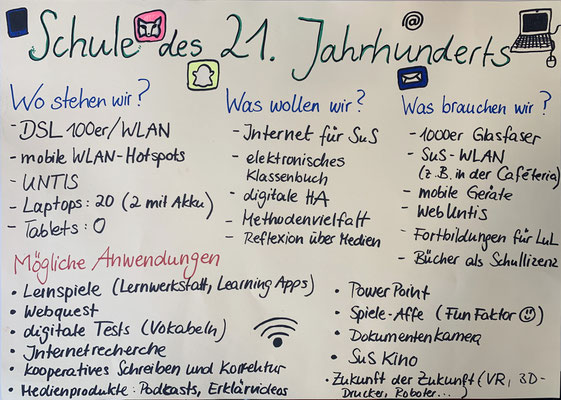 Schule des 21. Jahrhunderts
@
Wo stehen wir?
- DSL 100er/WLAN
- mobile WLAN-Hotspots
- UNTIS
- Laptops: 20 (2 mit Akku)
- Tablets: 0
Was wollen wir?
- Internet für SuS
- elektronisches
Klassenbuch
- digitale HA
- Methodenvielfalt
- Reflexion über Medien
Was brauchen wir?
- 1000er Glasfaser
- SuS-WLAN
(z.B. in der Caféteria)
- mobile Geräte
- WebUntis
- Fortbildungen für LuL
- Bücher als Schullizenz
Mögliche Anwendungen
• Lernspiele (Lernwerkstatt, Learning Apps)
• Webquest
• digitale Tests (Vokabeln)
• Internetrecherche
• kooperatives Schreiben und Korrektur
• Medienprodukte: Podcasts, Erklärvideos
• PowerPoint
• Spiele-Affe (Fun Faktor ☺)
• Dokumentenkamera
• SuS Kino
• Zukunft der Zukunft (VR, 3D-
Drucker, Roboter...)